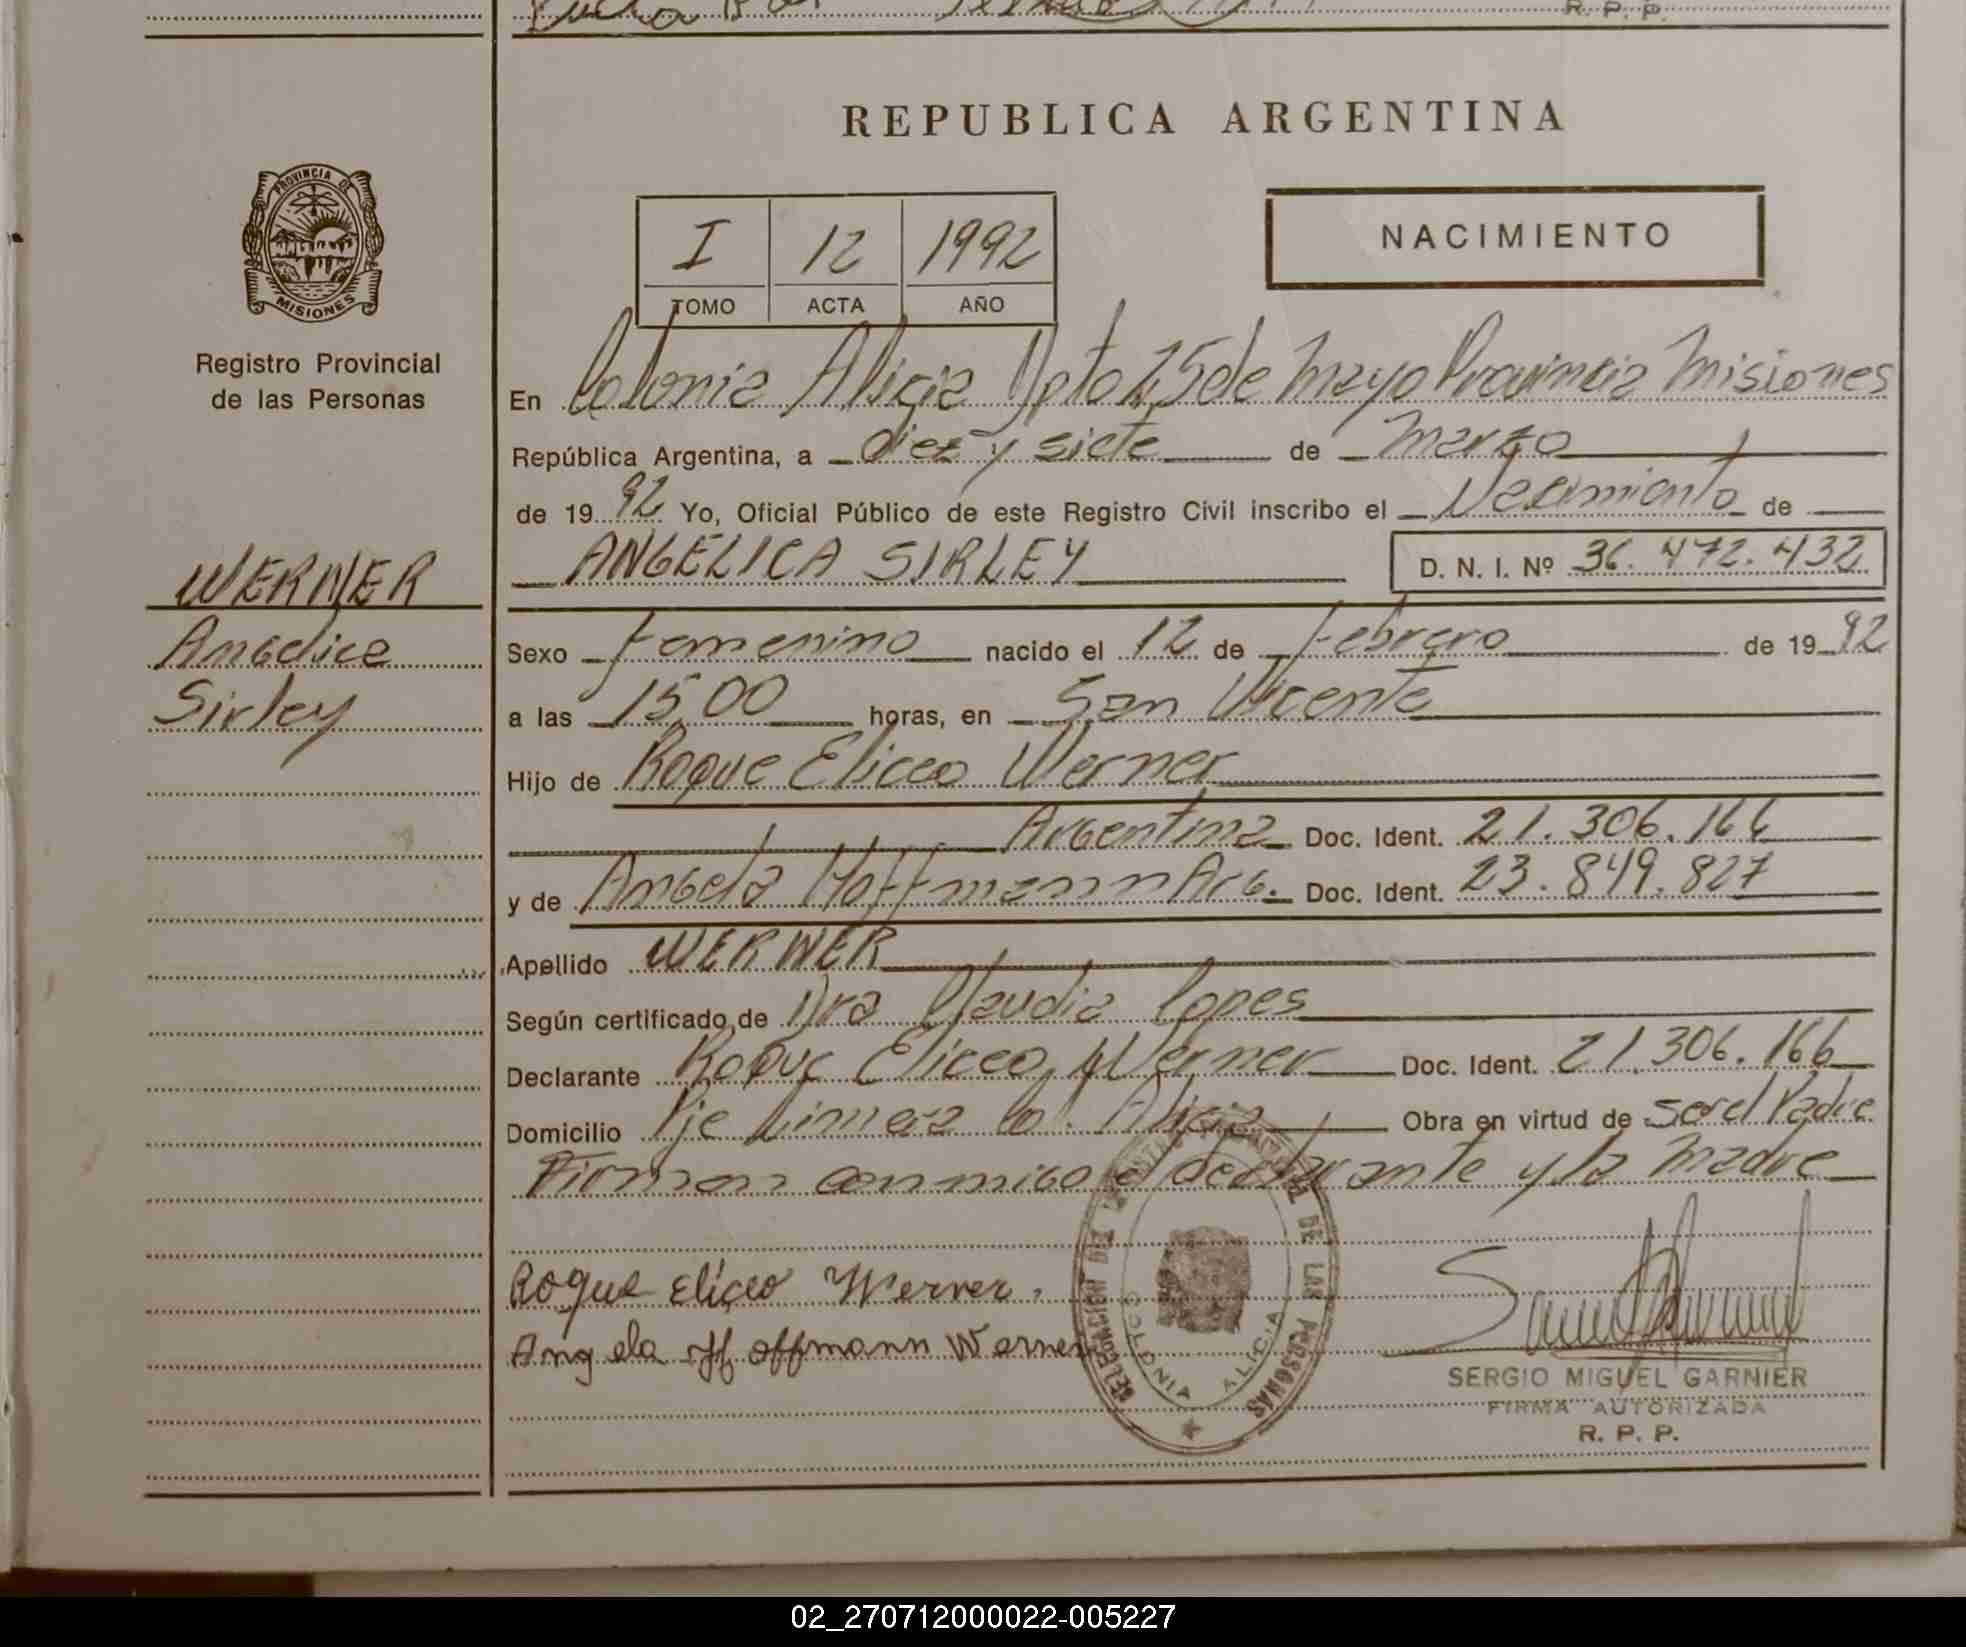 R. P. P.
REPUBLICA ARGENTINA
PROVINCIA DE
MISIONES
Registro Provincial
de las Personas
I 12 1992
TOMO ACTA AÑO
NACIMIENTO
En Colonia Alicia Dpto 25 de Mayo Provincia Misiones
República Argentina, a diez y siete de Marzo
de 19 92 Yo, Oficial Público de este Registro Civil inscribo el Nacimiento de
ANGELICA SIRLEY D. N. I. Nº 36.472.432
WERNER
Angelica
Sirley
Sexo Femenino nacido el 12 de Febrero de 19 92
a las 15,00 horas, en San Vicente
Hijo de Roque Eliceo Werner
Argentina Doc. Ident. 21.306.166
y de Angela Hoffmann Arg. Doc. Ident. 23.849.827
Apellido WERNER
Según certificado de Dra Claudia Lopes
Declarante Roque Eliceo Werner Doc. Ident. 21.306.166
Domicilio Pje Col. Alicia Obra en virtud de ser el Padre
Firman conmigo el declarante y la Madre
Roque Eliceo Werner.
Angela Hoffmann Werner
DE LAS PERSONAS
COLONIA ALICIA
SERGIO MIGUEL GARNIER
FIRMA AUTORIZADA
R. P. P.
02_270712000022-005227